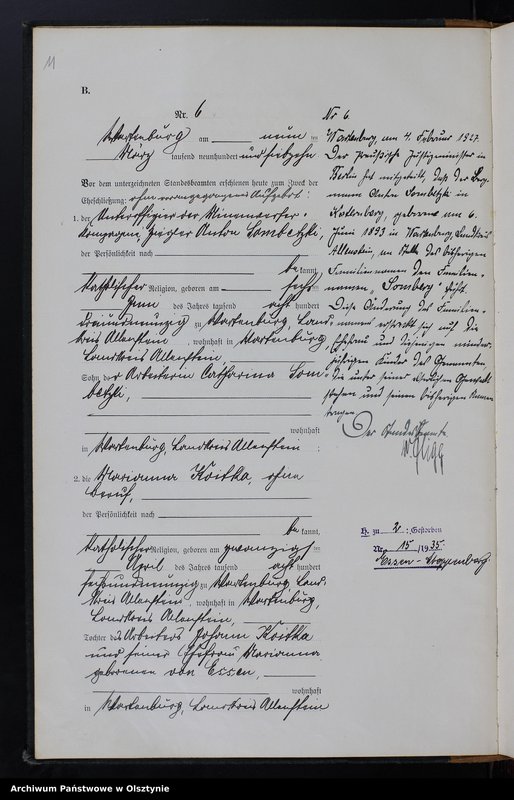 11
B.
Nr. 6
Wartenburg am neun ten
März tausend neunhundert und siebzehn
Vor dem unterzeichneten Standesbeamten erschienen heute zum Zweck der
Eheschließung: ohne vorangegangenes Aufgebot:
1. der Unteroffizier der
Ziegler Anton Sombetzki,
der Persönlichkeit nach
be kannt,
katholischer Religion, geboren am sechsten
Juni des Jahres tausend acht hundert
dreiundneunzig zu Wartenburg, Land-
kreis Allenstein, wohnhaft in Wartenburg,
Landkreis Allenstein,
Sohn der Arbeiterin Catharina Som-
betzki,
wohnhaft
in Wartenburg, Landkreis Allenstein :
2. die Marianna Koitka, ohne
Beruf,
der Persönlichkeit nach
be kannt,
katholischer Religion, geboren am zwanzigsten
April des Jahres tausend acht hundert
sechsundneunzig zu Wartenburg, Land-
kreis Allenstein, wohnhaft in Wartenburg,
Landkreis Allenstein,
Tochter des Arbeiters Johann Koitka
und seiner Ehefrau Marianna
geborenen von Essen,
wohnhaft
in Wartenburg, Landkreis Allenstein
Nr 6
Wartenburg, am 4. Februar 1927.
Der Preußische Justizminister in
Berlin hat mitgeteilt, daß der Berg-
mann Anton Sombetzki in
geboren am 6.
Juni 1893 in Wartenburg, Landkreis
Allenstein, an Stelle des bisherigen
Familiennamens den Familien-
namen „Somberg" führt.
Diese Änderung des Familien-
namens erstreckt sich auf die
Ehefrau und diejenigen minder-
jährigen Kinder des Genannten
die unter seiner elterlichen Gewalt
stehen und seinen bisherigen Namen
tragen.
Der Standesbeamte
H. zu 2 : Gestorben
Nr. 15 / 1935.
Essen-Stoppenberg.
Archiwum Państwowe w Olsztynie